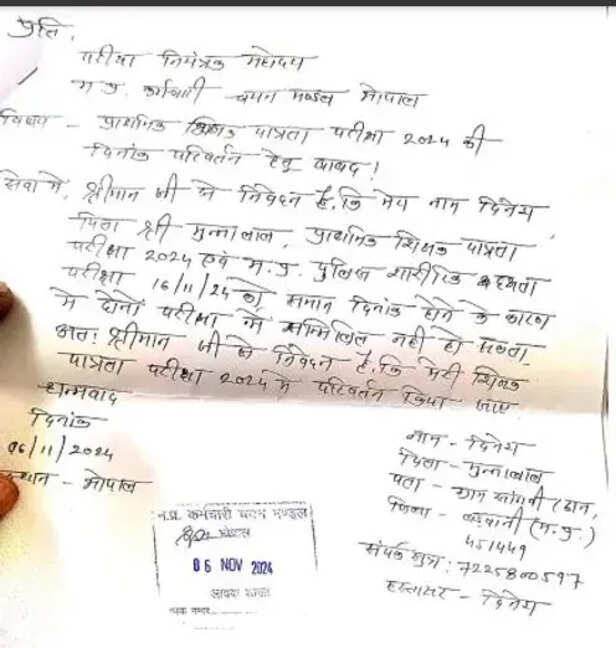 प्रति,
परीक्षा नियंत्रक महोदय
म.प्र. कर्मचारी चयन मण्डल भोपाल
विषय - प्राथमिक शिक्षक पात्रता परीक्षा 2024 की
दिनांक परिवर्तन हेतु बाबद!
सेवा में, श्रीमान जी से निवेदन है, कि मेरा नाम दिनेश
पिता श्री मुन्नालाल, प्राथमिक शिक्षक पात्रता
परीक्षा 2024 एवं म.प्र. पुलिस शारीरिक दक्षता
परीक्षा 16/11/24 को समान दिनांक होने के कारण
मे दोनों परीक्षा में सम्मिलित नही हो सकता.
अतः श्रीमान जी से निवेदन है, कि मेरी शिक्षक
पात्रता परीक्षा 2024 मे परिवर्तन किया जाए
धन्यवाद
दिनांक
06/11/2024
स्थान - भोपाल
नाम - दिनेश
पिता - मुन्नालाल
पता - ग्राम
जिला - बड़वानी (म.प्र.)
451449
संपर्क सूत्र : 7225800597
हस्ताक्षर - दिनेश
म.प्र. कर्मचारी चयन मण्डल
भोपाल
06 NOV 2024
आवक शाखा